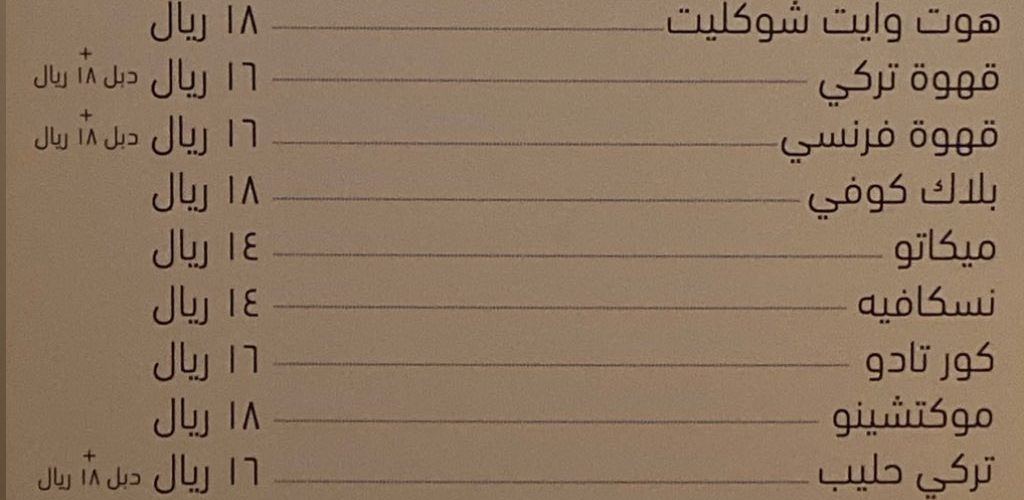 هوت وايت شوكليت ١٨ ريال
قهوة تركي ١٦ ريال دبل + ١٨ ريال
قهوة فرنسي ١٦ ريال دبل + ١٨ ريال
بلاك كوفي ١٨ ريال
ميكاتو ١٤ ريال
نسكافيه ١٤ ريال
كور تادو ١٦ ريال
موكتشينو ١٨ ريال
تركي حليب ١٦ ريال دبل + ١٨ ريال